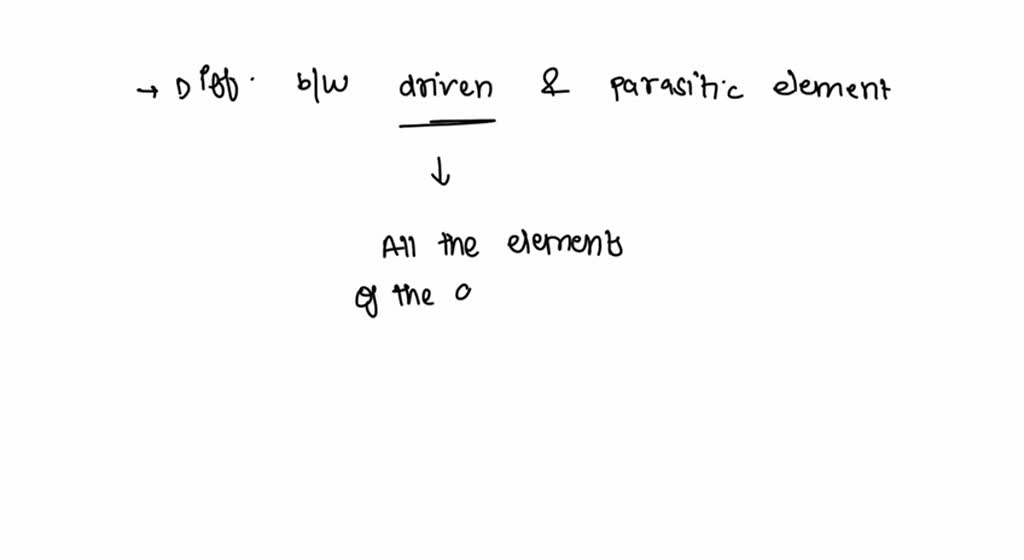 → Diff. b/w driven & parasitic element
↓
All the elements
of the o